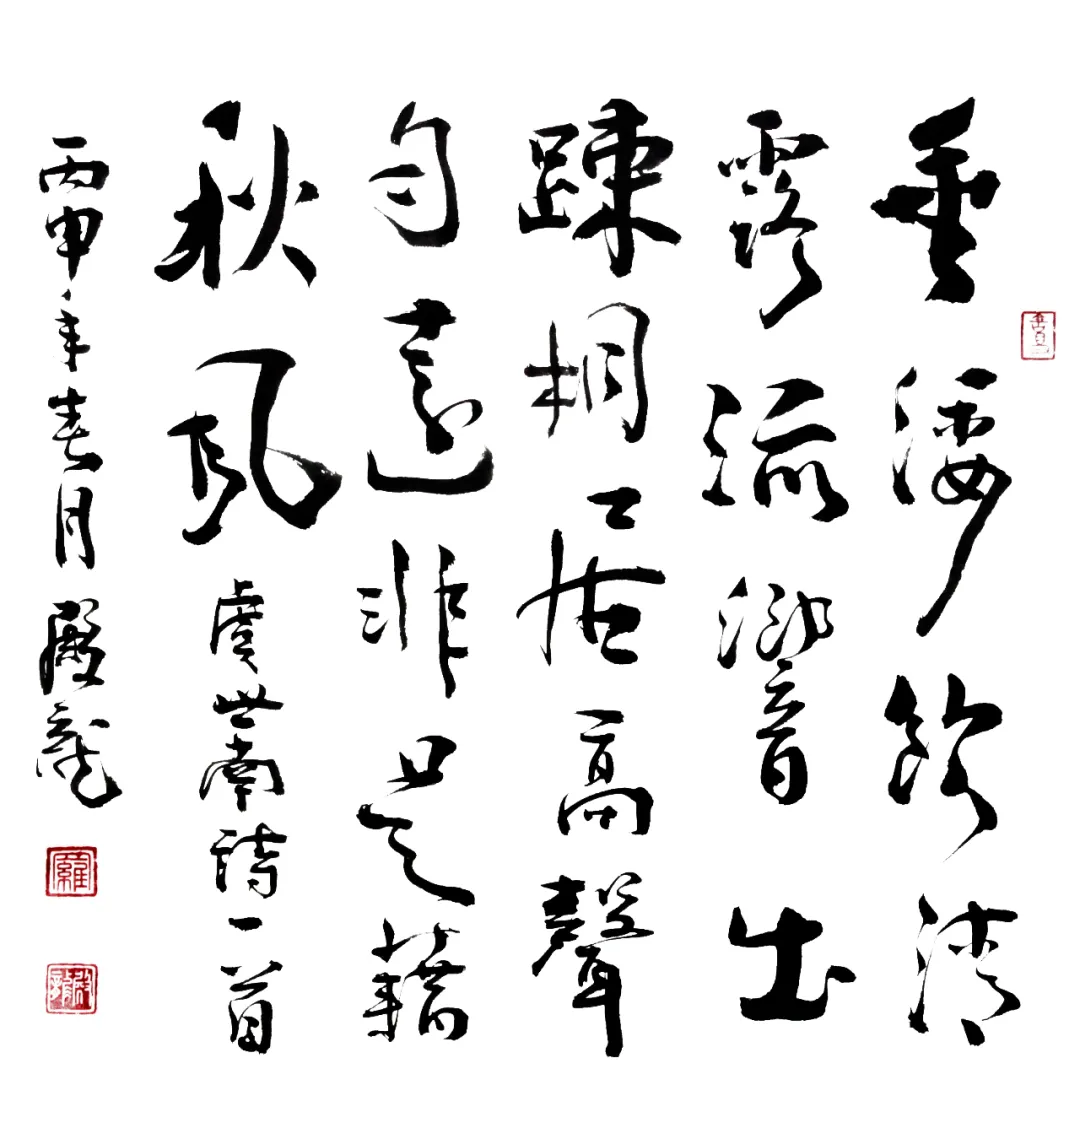 垂緌飲清
露流響出
踈桐居高聲
自遠非是藉
秋風 虞世南詩一首
丙申年春月 殿龍
羅
殿龍